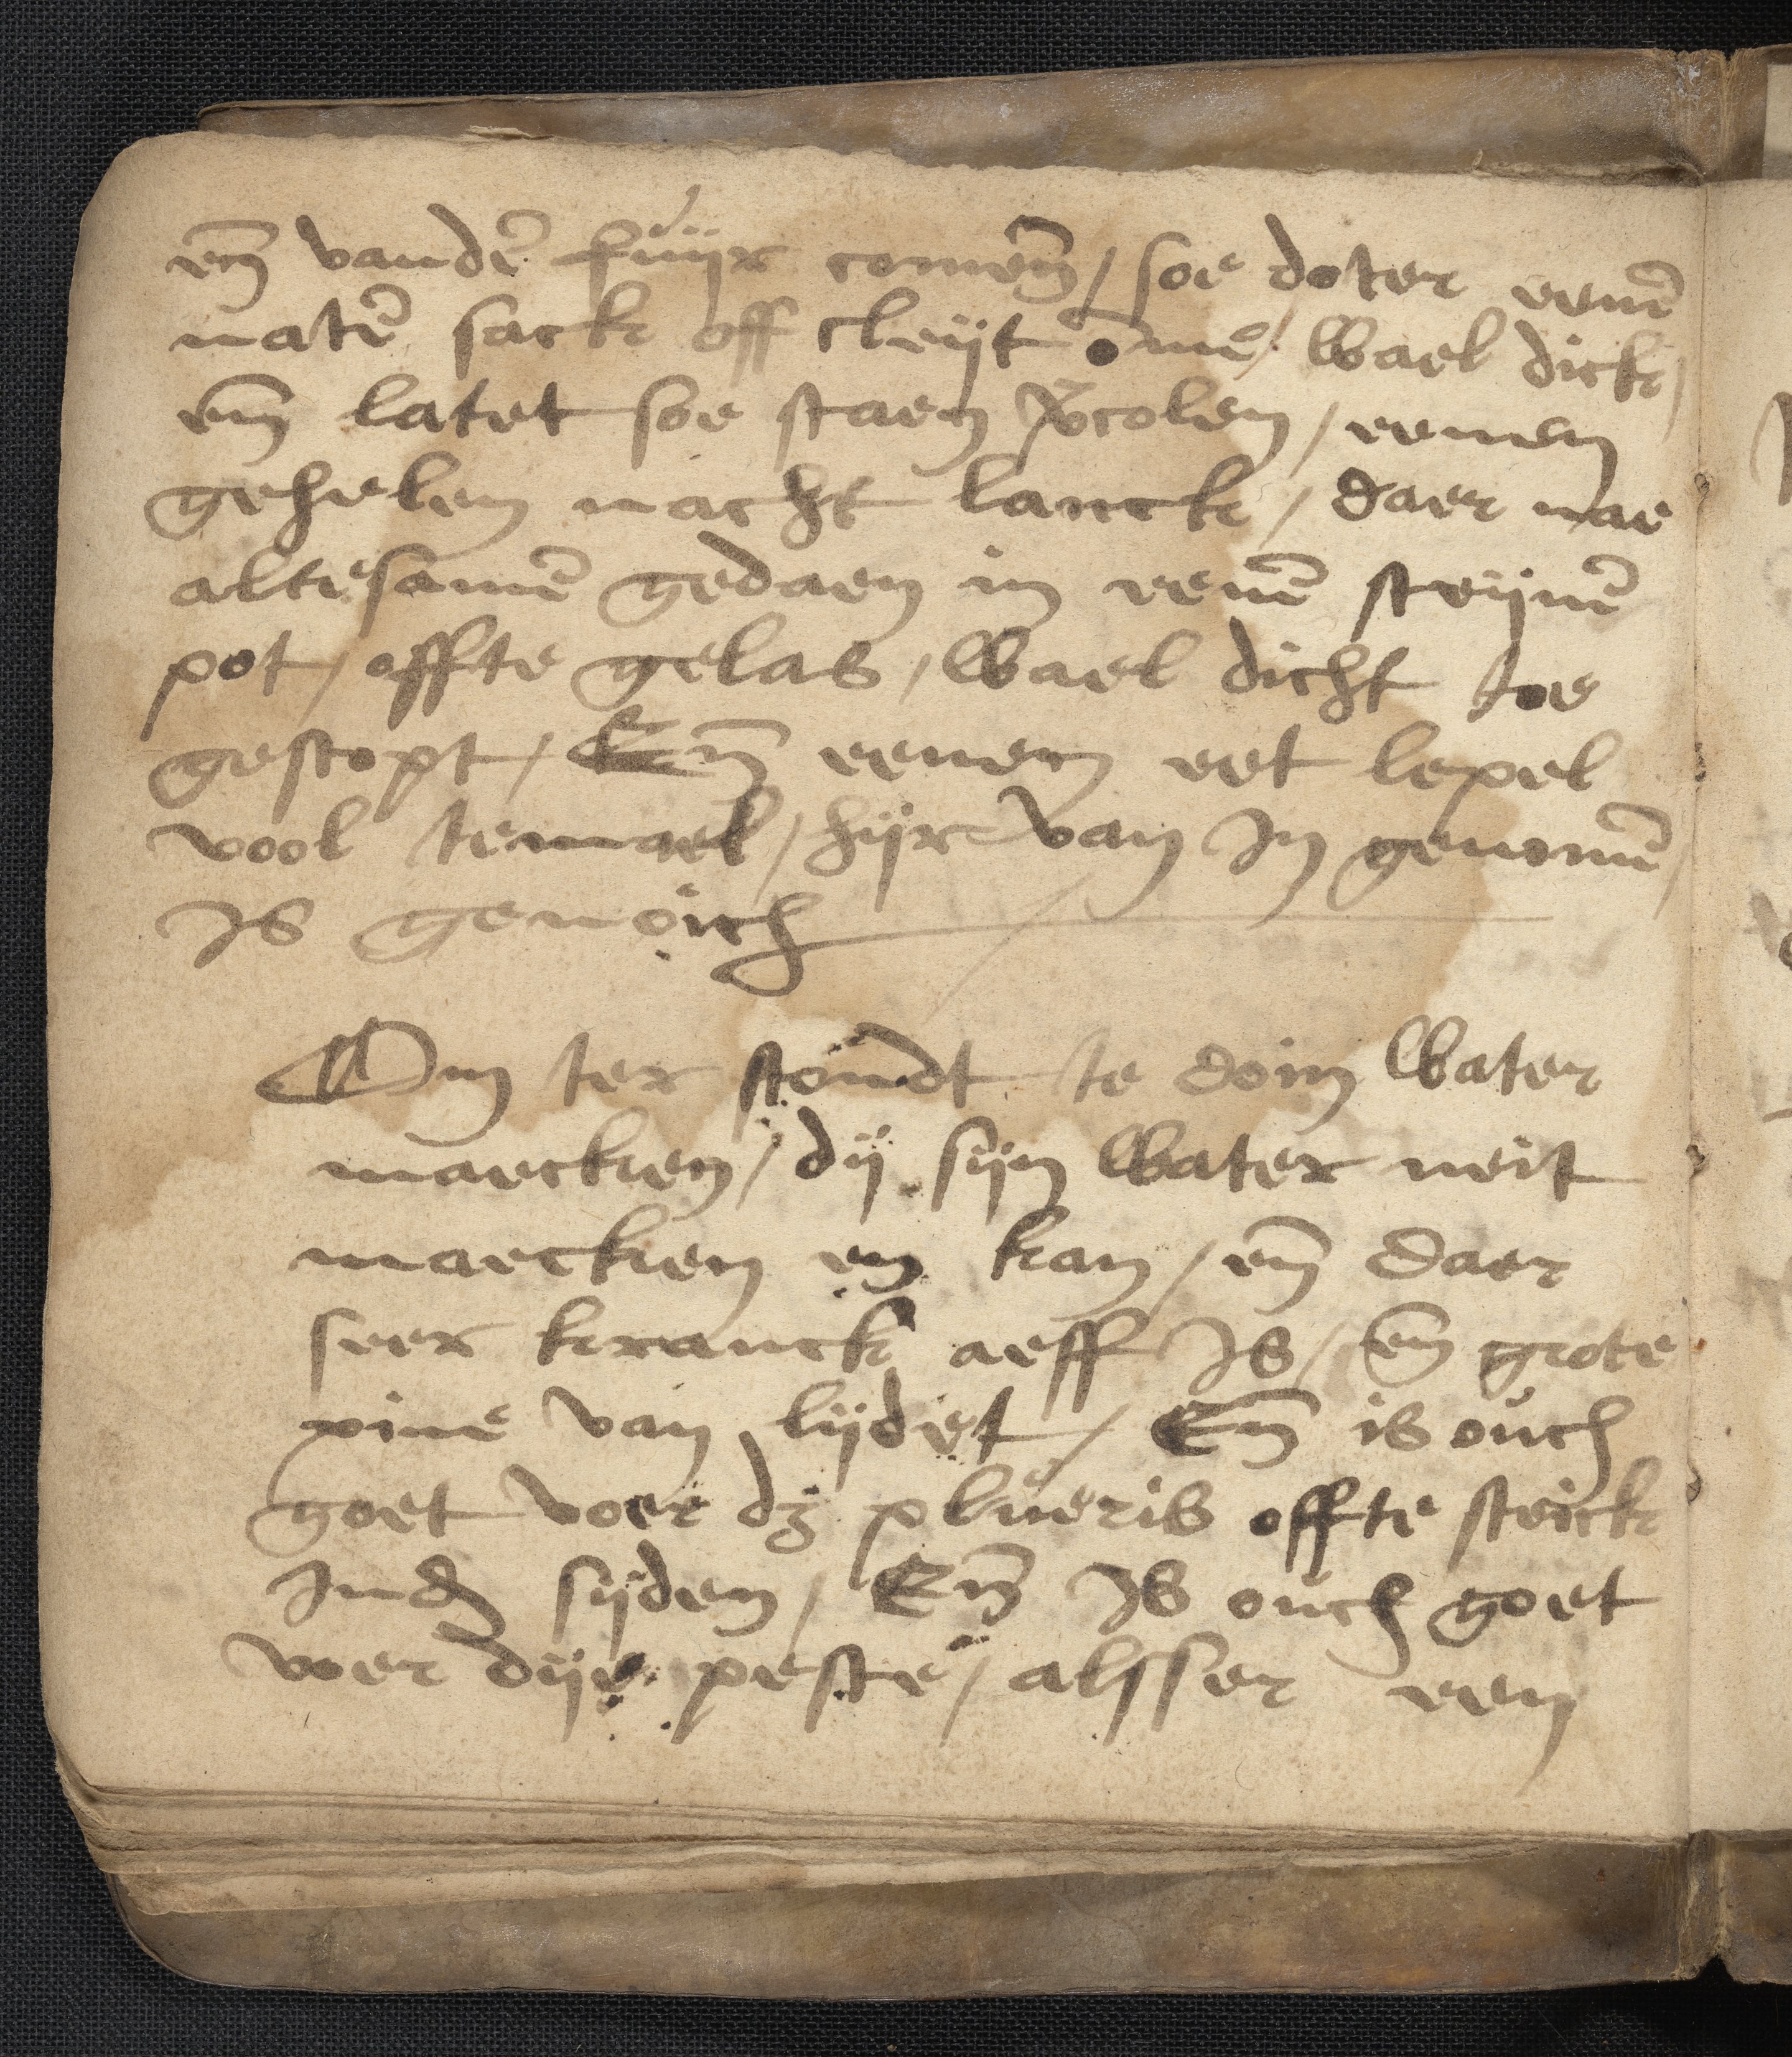 en̄ vandē fuijr comen̄ / soe doter eenē
natē sack off cleijt om̄e / wael dick /
en̄ latet soe staen v̄colen / eenen
gehelen nacht lanck / daer nae
altesamē gedaen in eenē steijnē
pot / offte gelas / wael dicht toe
gestopt / En̄ eenen eet lepel
vool temael / hijr van In genomē /
Is genoich
Om ter stondt te doin water
maecken / dij sijn water neit
maecken en kan / en̄ daer
seer kranck aeff Is / en̄ grote
pine van lijdet / En̄ is ouch
goet voer dʒ plueris offte steick
Ind̄ sijden / En̄ Is ouch goet
voer dije peste / alsser een